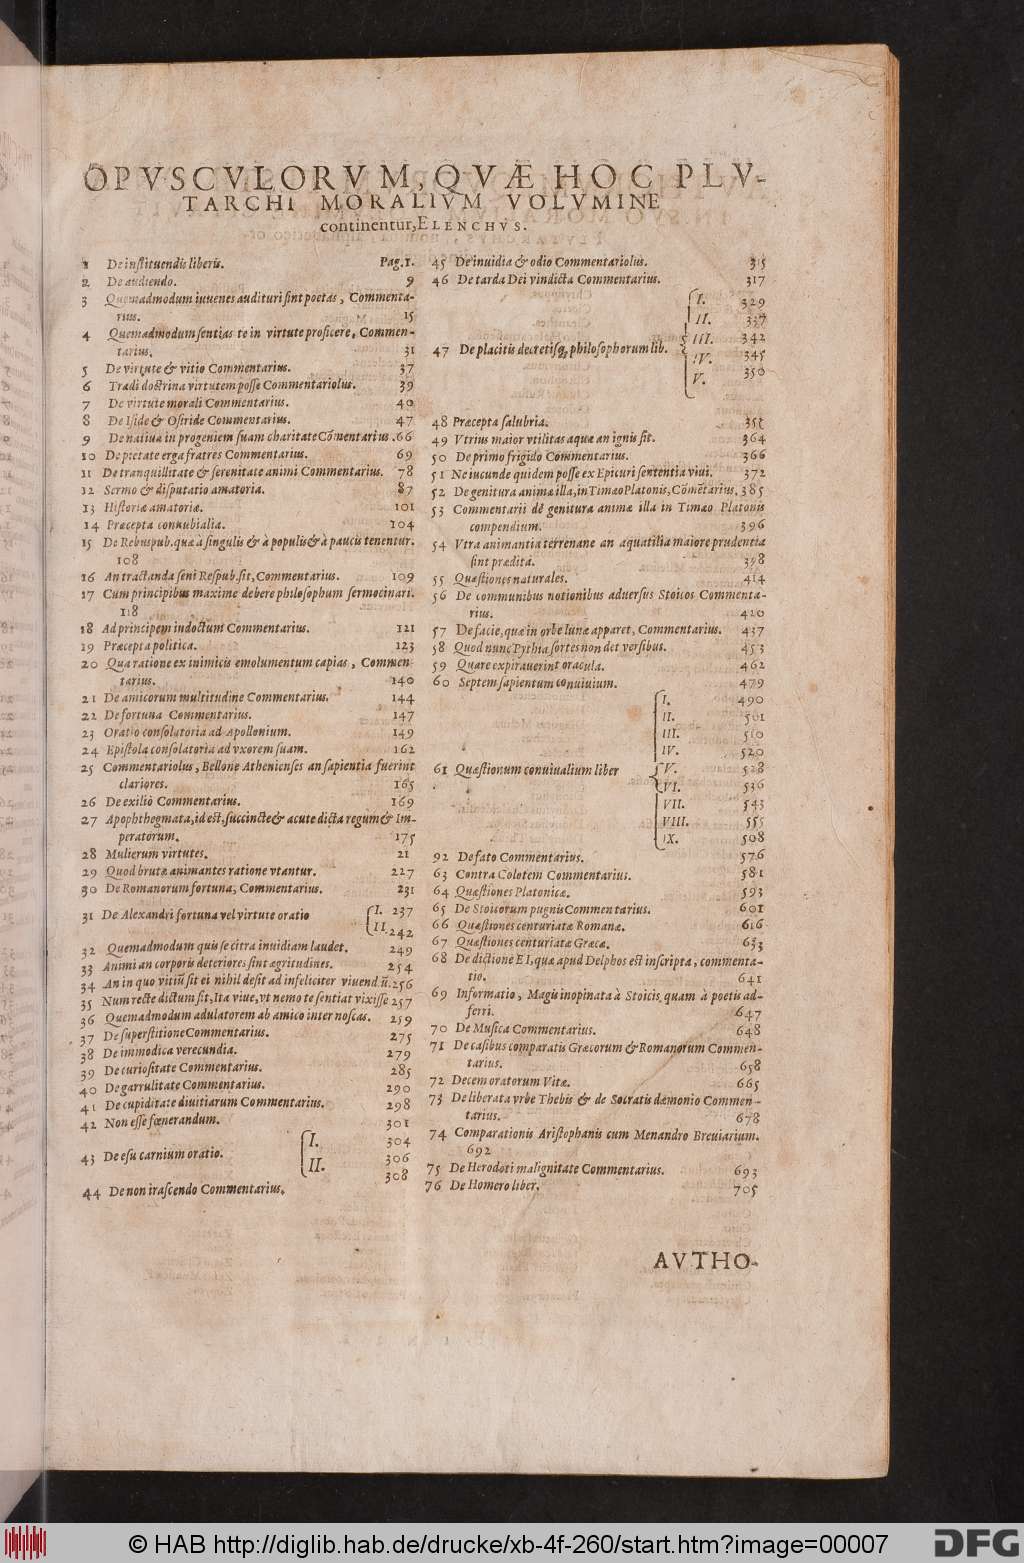 OPVSCVLORVM, QVÆ HOC PLV-
TARCHI MORALIVM VOLVMINE
continentur, ELENCHVS.
1 De instituendis liberis. Pag. 1.
2 De audiendo. 9
3 Quemadmodum iuuenes audituri sint poetas, Commenta-
rius. 15
4 Quemadmodum sentias te in virtute proficere, Commen-
tarius. 31
5 De virtute & vitio Commentarius. 37
6 Tradi doctrina virtutem posse Commentariolus. 39
7 De virtute morali Commentarius. 40
8 De Iside & Osiride Commentarius. 47
9 De natiua in progeniem suam charitate Cōmentarius. 66
10 De pietate erga fratres Commentarius. 69
11 De tranquillitate & serenitate animi Commentarius. 78
12 Sermo & disputatio amatoria. 87
13 Historiæ amatoriæ. 101
14 Præcepta connubialia. 104
15 De Rebuspub. quæ à singulis & à populis & à paucis tenentur.
108
16 An tractanda seni Respub. sit, Commentarius. 109
17 Cum principibus maxime debere philosophum sermocinari.
118
18 Ad principem indoctum Commentarius. 121
19 Præcepta politica. 123
20 Qua ratione ex inimicis emolumentum capias, Commen-
tarius. 140
21 De amicorum multitudine Commentarius. 144
22 De fortuna Commentarius. 147
23 Oratio consolatoria ad Apollonium. 149
24 Epistola consolatoria ad vxorem suam. 162
25 Commentariolus, Bellone Athenienses an sapientia fuerint
clariores. 165
26 De exilio Commentarius. 169
27 Apophthegmata, id est, succincte & acute dicta regum & Im-
peratorum. 175
28 Mulierum virtutes. 21
29 Quod brutæ animantes ratione vtantur. 227
30 De Romanorum fortuna, Commentarius. 231
31 De Alexandri fortuna vel virtute oratio I. 237
II. 242
32 Quemadmodum quis se citra inuidiam laudet. 249
33 Animi an corporis deteriores sint ægritudines. 254
34 An in quo vitiū sit ei nihil desit ad infeliciter viuendū. 256
35 Num recte dictum sit, Ita viue, vt nemo te sentiat vixisse 257
36 Quemadmodum adulatorem ab amico internoscas. 259
37 De superstitione Commentarius. 275
38 De immodica verecundia. 279
39 De curiositate Commentarius. 285
40 De garrulitate Commentarius. 290
41 De cupiditate diuitiarum Commentarius. 298
42 Non esse fœnerandum. 301
43 De esu carnium oratio. I. 304
II. 306
308
44 De non irascendo Commentarius.
45 De inuidia & odio Commentariolus. 315
46 De tarda Dei vindicta Commentarius. 317
47 De placitis decretisq; philosophorum lib. I. 329
II. 337
III. 342
IV. 345
V. 350
48 Præcepta salubria. 351
49 Vtrius maior vtilitas aquæ an ignis sit. 364
50 De primo frigido Commentarius. 366
51 Ne iucunde quidem posse ex Epicuri sententia viui. 372
52 De genitura animæ illa, in Timæo Platonis, Cōmētarius. 385
53 Commentarii dē genitura animæ illa in Timæo Platonis
compendium. 396
54 Vtra animantia terrenane an aquatilia maiore prudentia
sint prædita. 398
55 Quæstiones naturales. 414
56 De communibus notionibus aduersus Stoicos Commenta-
rius. 420
57 De facie, quæ in orbe lunæ apparet, Commentarius. 437
58 Quod nunc Pythia sortes non det versibus. 453
59 Quare expirauerint oracula. 462
60 Septem sapientum conuiuium. 479
61 Quæstionum conuiualium liber I. 490
II. 501
III. 510
IV. 520
V. 528
VI. 536
VII. 543
VIII. 555
IX. 508
92 De fato Commentarius. 576
63 Contra Colotem Commentarius. 581
64 Quæstiones Platonicæ. 593
65 De Stoicorum pugnis Commentarius. 601
66 Quæstiones centuriatæ Romanæ. 616
67 Quæstiones centuriatæ Græcæ. 633
68 De dictione EI, quæ apud Delphos est inscripta, commenta-
tio. 641
69 Informatio, Magis inopinata à Stoicis quam à poetis ad-
ferri. 647
70 De Musica Commentarius. 648
71 De casibus comparatis Græcorum & Romanorum Commen-
tarius. 658
72 Decem oratorum Vitæ. 665
73 De liberata vrbe Thebis & de Socratis dæmonio Commen-
tarius. 678
74 Comparationis Aristophanis cum Menandro Breuiarium.
692
75 De Herodoti malignitate Commentarius. 693
76 De Homero liber. 705
AVTHO-
© HAB http://diglib.hab.de/drucke/xb-4f-260/start.htm?image=00007
DFG